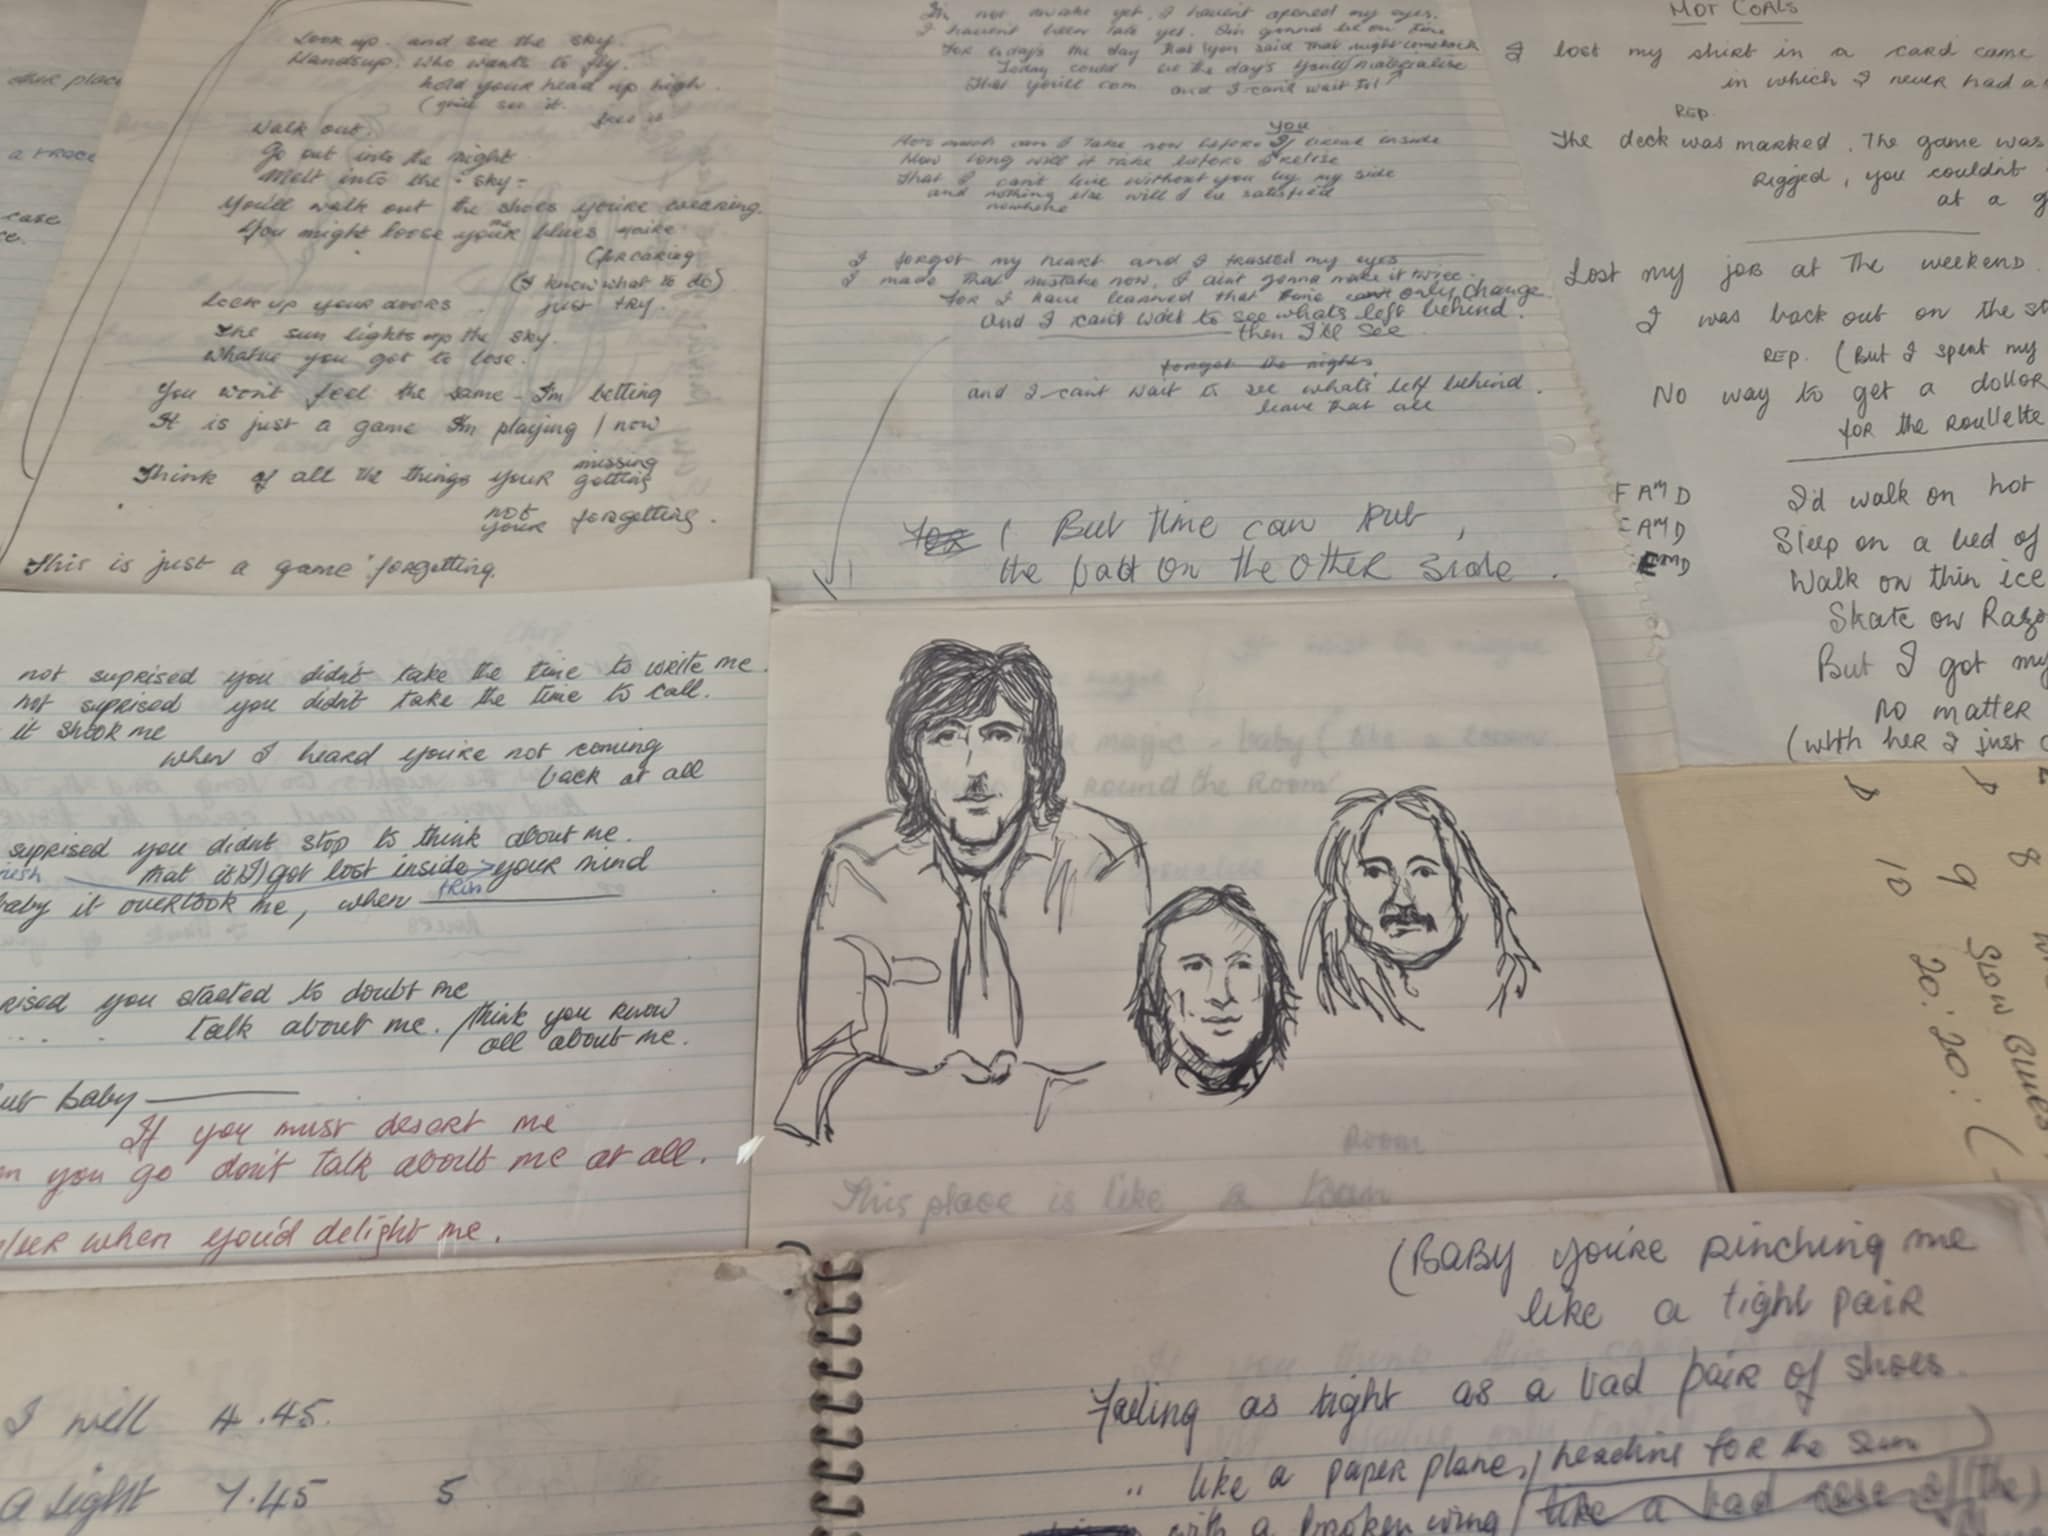 other place
a trace
case
ce.
Look up. and see the sky.
Handsup. who wants to fly.
hold your head up high.
see it
Walk out.
Go out into the night
Melt into the - sky -
You'll walk out the shoes you're wearing.
You might loose your blues
(for caring
(I know what to do)
Lock up your doors. just try.
The sun lights up the sky.
Whatve you got to lose.
You won't feel the same - I'm betting
It is just a game I'm playing / now
missing
Think of all the things your getting
not
your forgetting.
This is just a game forgetting.
I'm not awake yet, I havent opened my eyes.
I havent been late yet. I'm gonna be on time
For today's the day that you said that
Today could be the day's you'll materialise
That you'll com and I can't wait til
you
How much can I take now before I break inside
How long will it take before I relise
That I can't live without you by my side
and nothing else will I be satisfied
nowhere
I forgot my heart and I trusted my eyes
I made that mistake now, I aint gonna make it twice.
For I have learned that time can't only change
And I can't wait to see whats left behind.
then I'll see
forget the nights
and I can't wait to see what's left behind.
leave that all
For ( But time can put,
the last on the other side.
HOT COALS
I lost my shirt in a card came
in which I never had a
REP.
The deck was marked. The game was
Rigged, you couldn't
at a g
Lost my job at the weekend.
I was back out on the st
REP. (But I spent my
No way to get a dollar
for the roullette
F AM D I'd walk on hot
AM D Sleep on a bed of
Walk on thin ice
Skate on Razo
But I got my
no matter
(with her I just
not suprised you didn't take the time to write me.
not suprised you didn't take the time to call.
it shook me
when I heard you're not coming
back at all
suprised you didnt stop to think about me.
that it (I) got lost inside > your mind
baby it overtook me, when
rised you started to doubt me
talk about me. / think you know
all about me.
but baby
If you must desert me
you go don't talk about me at all.
when you'd delight me.
magic - baby ( like a
round the Room
Room
This place is like a
8
9 Slow Blues
10 20:20: (
(Baby you're pinching me
like a tight pair
Falling as tight as a bad pair of shoes.
" like a paper plane, / heading for the sun
with a broken wing / like a bad case of (the)
I will 4.45.
a light 7.45 5